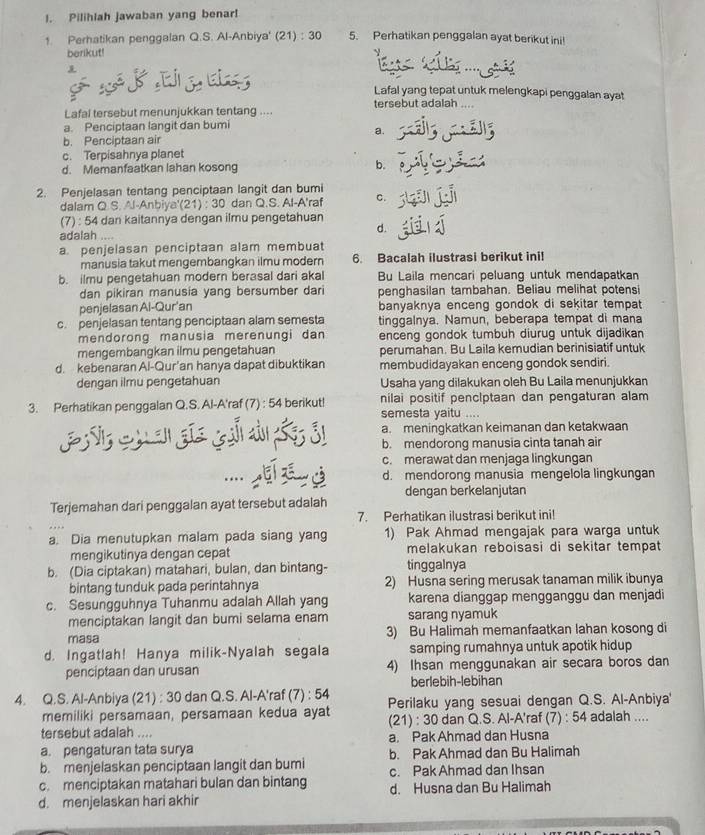 I. Pilihlah jawaban yang benar!
1. Perhatikan penggalan Q.S. Al-Anbiya' (21) : 30
berikut!
وَجَعَلْنَا مِنَ الْمَاءِ كُلَّ شَيْءٍ حَيٍّ
Lafal tersebut menunjukkan tentang ....
a. Penciptaan langit dan bumi
b. Penciptaan air
c. Terpisahnya planet
d. Memanfaatkan lahan kosong
2. Penjelasan tentang penciptaan langit dan bumi
dalam Q.S. Al-Anbiya'(21) : 30 dan Q.S. Al-A'raf
(7) : 54 dan kaitannya dengan ilmu pengetahuan
adalah ....
a. penjelasan penciptaan alam membuat
manusia takut mengembangkan ilmu modern
b. ilmu pengetahuan modern berasal dari akal
dan pikiran manusia yang bersumber dari
penjelasan Al-Qur'an
c. penjelasan tentang penciptaan alam semesta
mendorong manusia merenungi dan
mengembangkan ilmu pengetahuan
d. kebenaran Al-Qur'an hanya dapat dibuktikan
dengan ilmu pengetahuan
3. Perhatikan penggalan Q.S. Al-A'raf (7) : 54 berikut!
إِنَّ رَبَّكُمُ اللَّهُ الَّذِي خَلَقَ السَّمٰوٰتِ وَالْأَرْضَ
فِي سِتَّةِ أَيَّامٍ ....
Terjemahan dari penggalan ayat tersebut adalah
....
a. Dia menutupkan malam pada siang yang
mengikutinya dengan cepat
b. (Dia ciptakan) matahari, bulan, dan bintang-
bintang tunduk pada perintahnya
c. Sesungguhnya Tuhanmu adalah Allah yang
menciptakan langit dan bumi selama enam
masa
d. Ingatlah! Hanya milik-Nyalah segala
penciptaan dan urusan
4. Q.S. Al-Anbiya (21) : 30 dan Q.S. Al-A'raf (7) : 54
memiliki persamaan, persamaan kedua ayat
tersebut adalah ....
a. pengaturan tata surya
b. menjelaskan penciptaan langit dan bumi
c. menciptakan matahari bulan dan bintang
d. menjelaskan hari akhir
5. Perhatikan penggalan ayat berikut ini!
يُغْشِي .... يَطْلُبُهُ حَثِيثًا
Lafal yang tepat untuk melengkapi penggalan ayat
tersebut adalah ....
a. وَالشَّمْسَ وَالْقَمَرَ
b. مُسَخَّرٰتٍ بِأَمْرِهِ
c. الَّيْلَ النَّهَارَ
d. أَلَا لَهُ الْخَلْقُ
6. Bacalah ilustrasi berikut ini!
Bu Laila mencari peluang untuk mendapatkan
penghasilan tambahan. Beliau melihat potensi
banyaknya enceng gondok di sekitar tempat
tinggalnya. Namun, beberapa tempat di mana
enceng gondok tumbuh diurug untuk dijadikan
perumahan. Bu Laila kemudian berinisiatif untuk
membudidayakan enceng gondok sendiri.
Usaha yang dilakukan oleh Bu Laila menunjukkan
nilai positif penciptaan dan pengaturan alam
semesta yaitu ....
a. meningkatkan keimanan dan ketakwaan
b. mendorong manusia cinta tanah air
c. merawat dan menjaga lingkungan
d. mendorong manusia mengelola lingkungan
dengan berkelanjutan
7. Perhatikan ilustrasi berikut ini!
1) Pak Ahmad mengajak para warga untuk
melakukan reboisasi di sekitar tempat
tinggalnya
2) Husna sering merusak tanaman milik ibunya
karena dianggap mengganggu dan menjadi
sarang nyamuk
3) Bu Halimah memanfaatkan lahan kosong di
samping rumahnya untuk apotik hidup
4) Ihsan menggunakan air secara boros dan
berlebih-lebihan
Perilaku yang sesuai dengan Q.S. Al-Anbiya'
(21) : 30 dan Q.S. Al-A'raf (7) : 54 adalah ....
a. Pak Ahmad dan Husna
b. Pak Ahmad dan Bu Halimah
c. Pak Ahmad dan Ihsan
d. Husna dan Bu Halimah